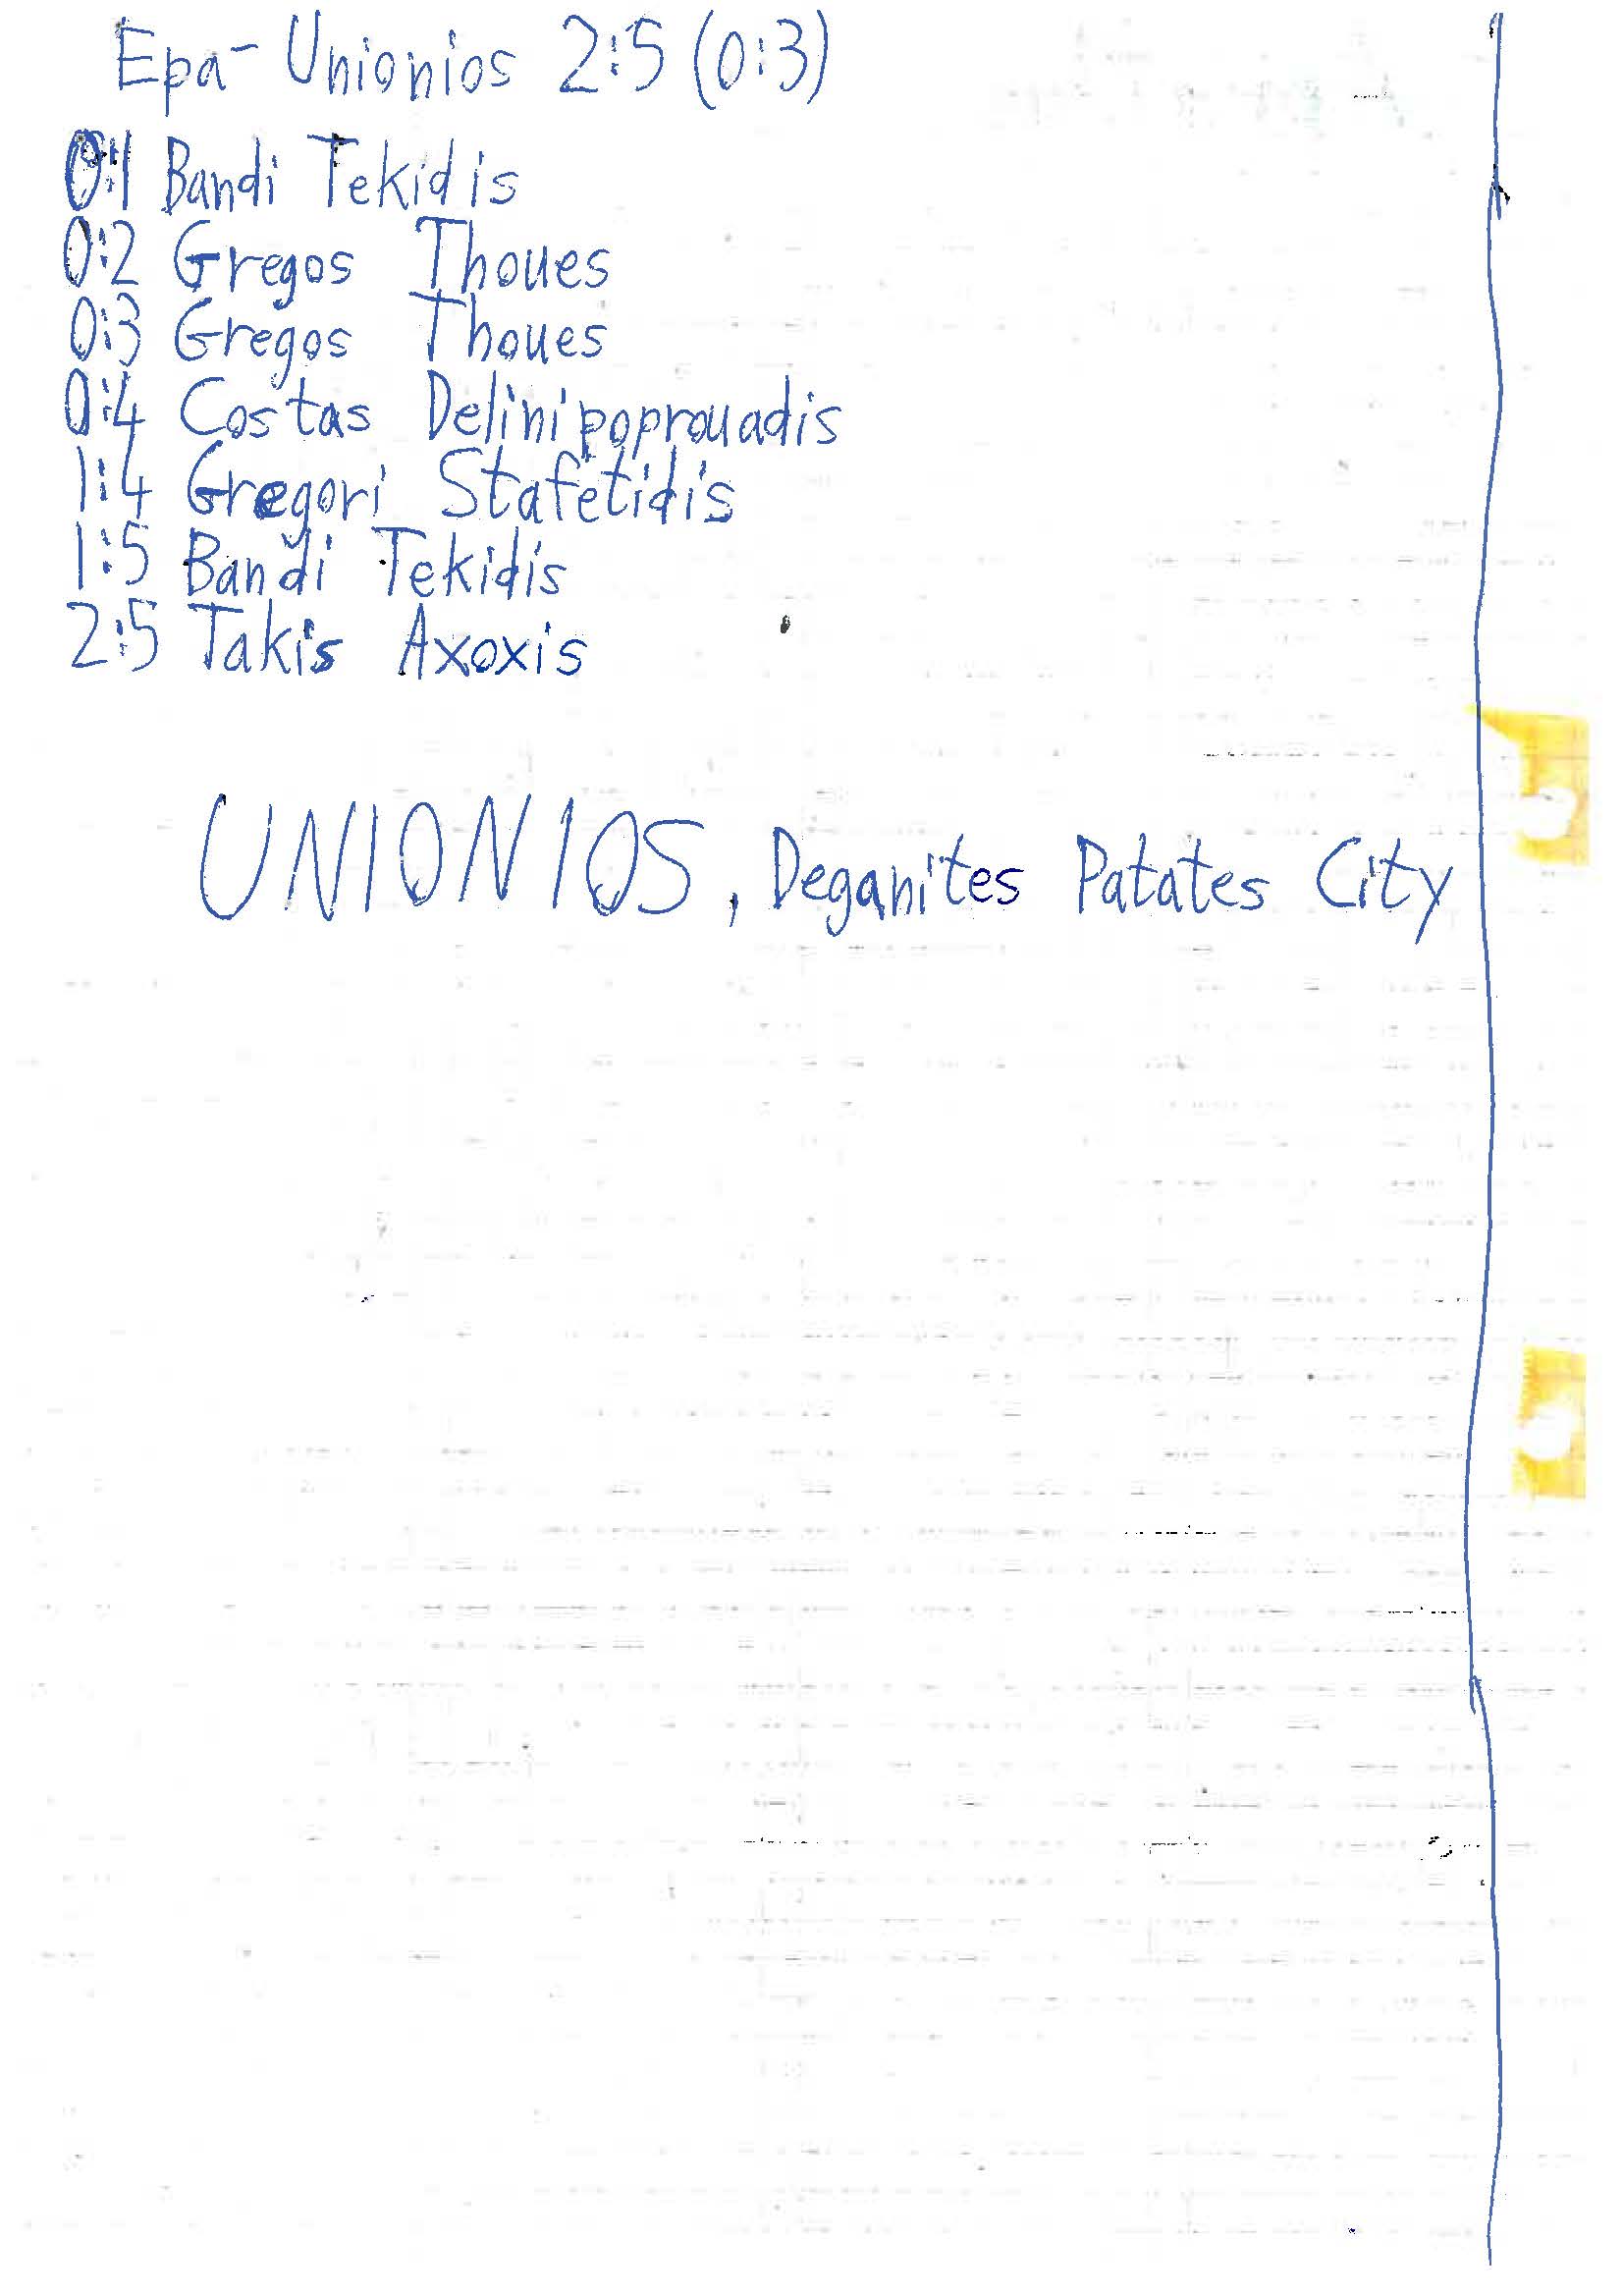 Epa- Unionios 2:5 (0:3)
0:1 Bandi Tekidis
0:2 Gregos Thoues
0:3 Gregos Thoues
0:4 Costas Delinipoprouadis
1:4 Gregori Stafetidis
1:5 Bandi Tekidis
2:5 Takis Axoxis
UNIONIOS, Deganites Patates City